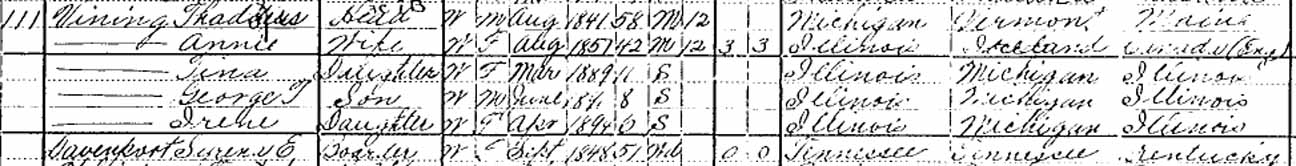 111 Vining Thaddeus Head W M Aug 1841 58 M 12 Michigan Vermont Maine
—— Annie Wife W F Aug 1857 42 M 12 3 3 Illinois Ireland Canada (Eng)
—— Tina Daughter W F Mar 1889 11 S Illinois Michigan Illinois
—— George T Son W M June 8 S Illinois Michigan Illinois
—— Irene Daughter W F Apr 1894 S Illinois Michigan Illinois
Davenport E Boarder W F Sept 1848 51 Wd 0 0 Tennessee Tennessee Kentucky